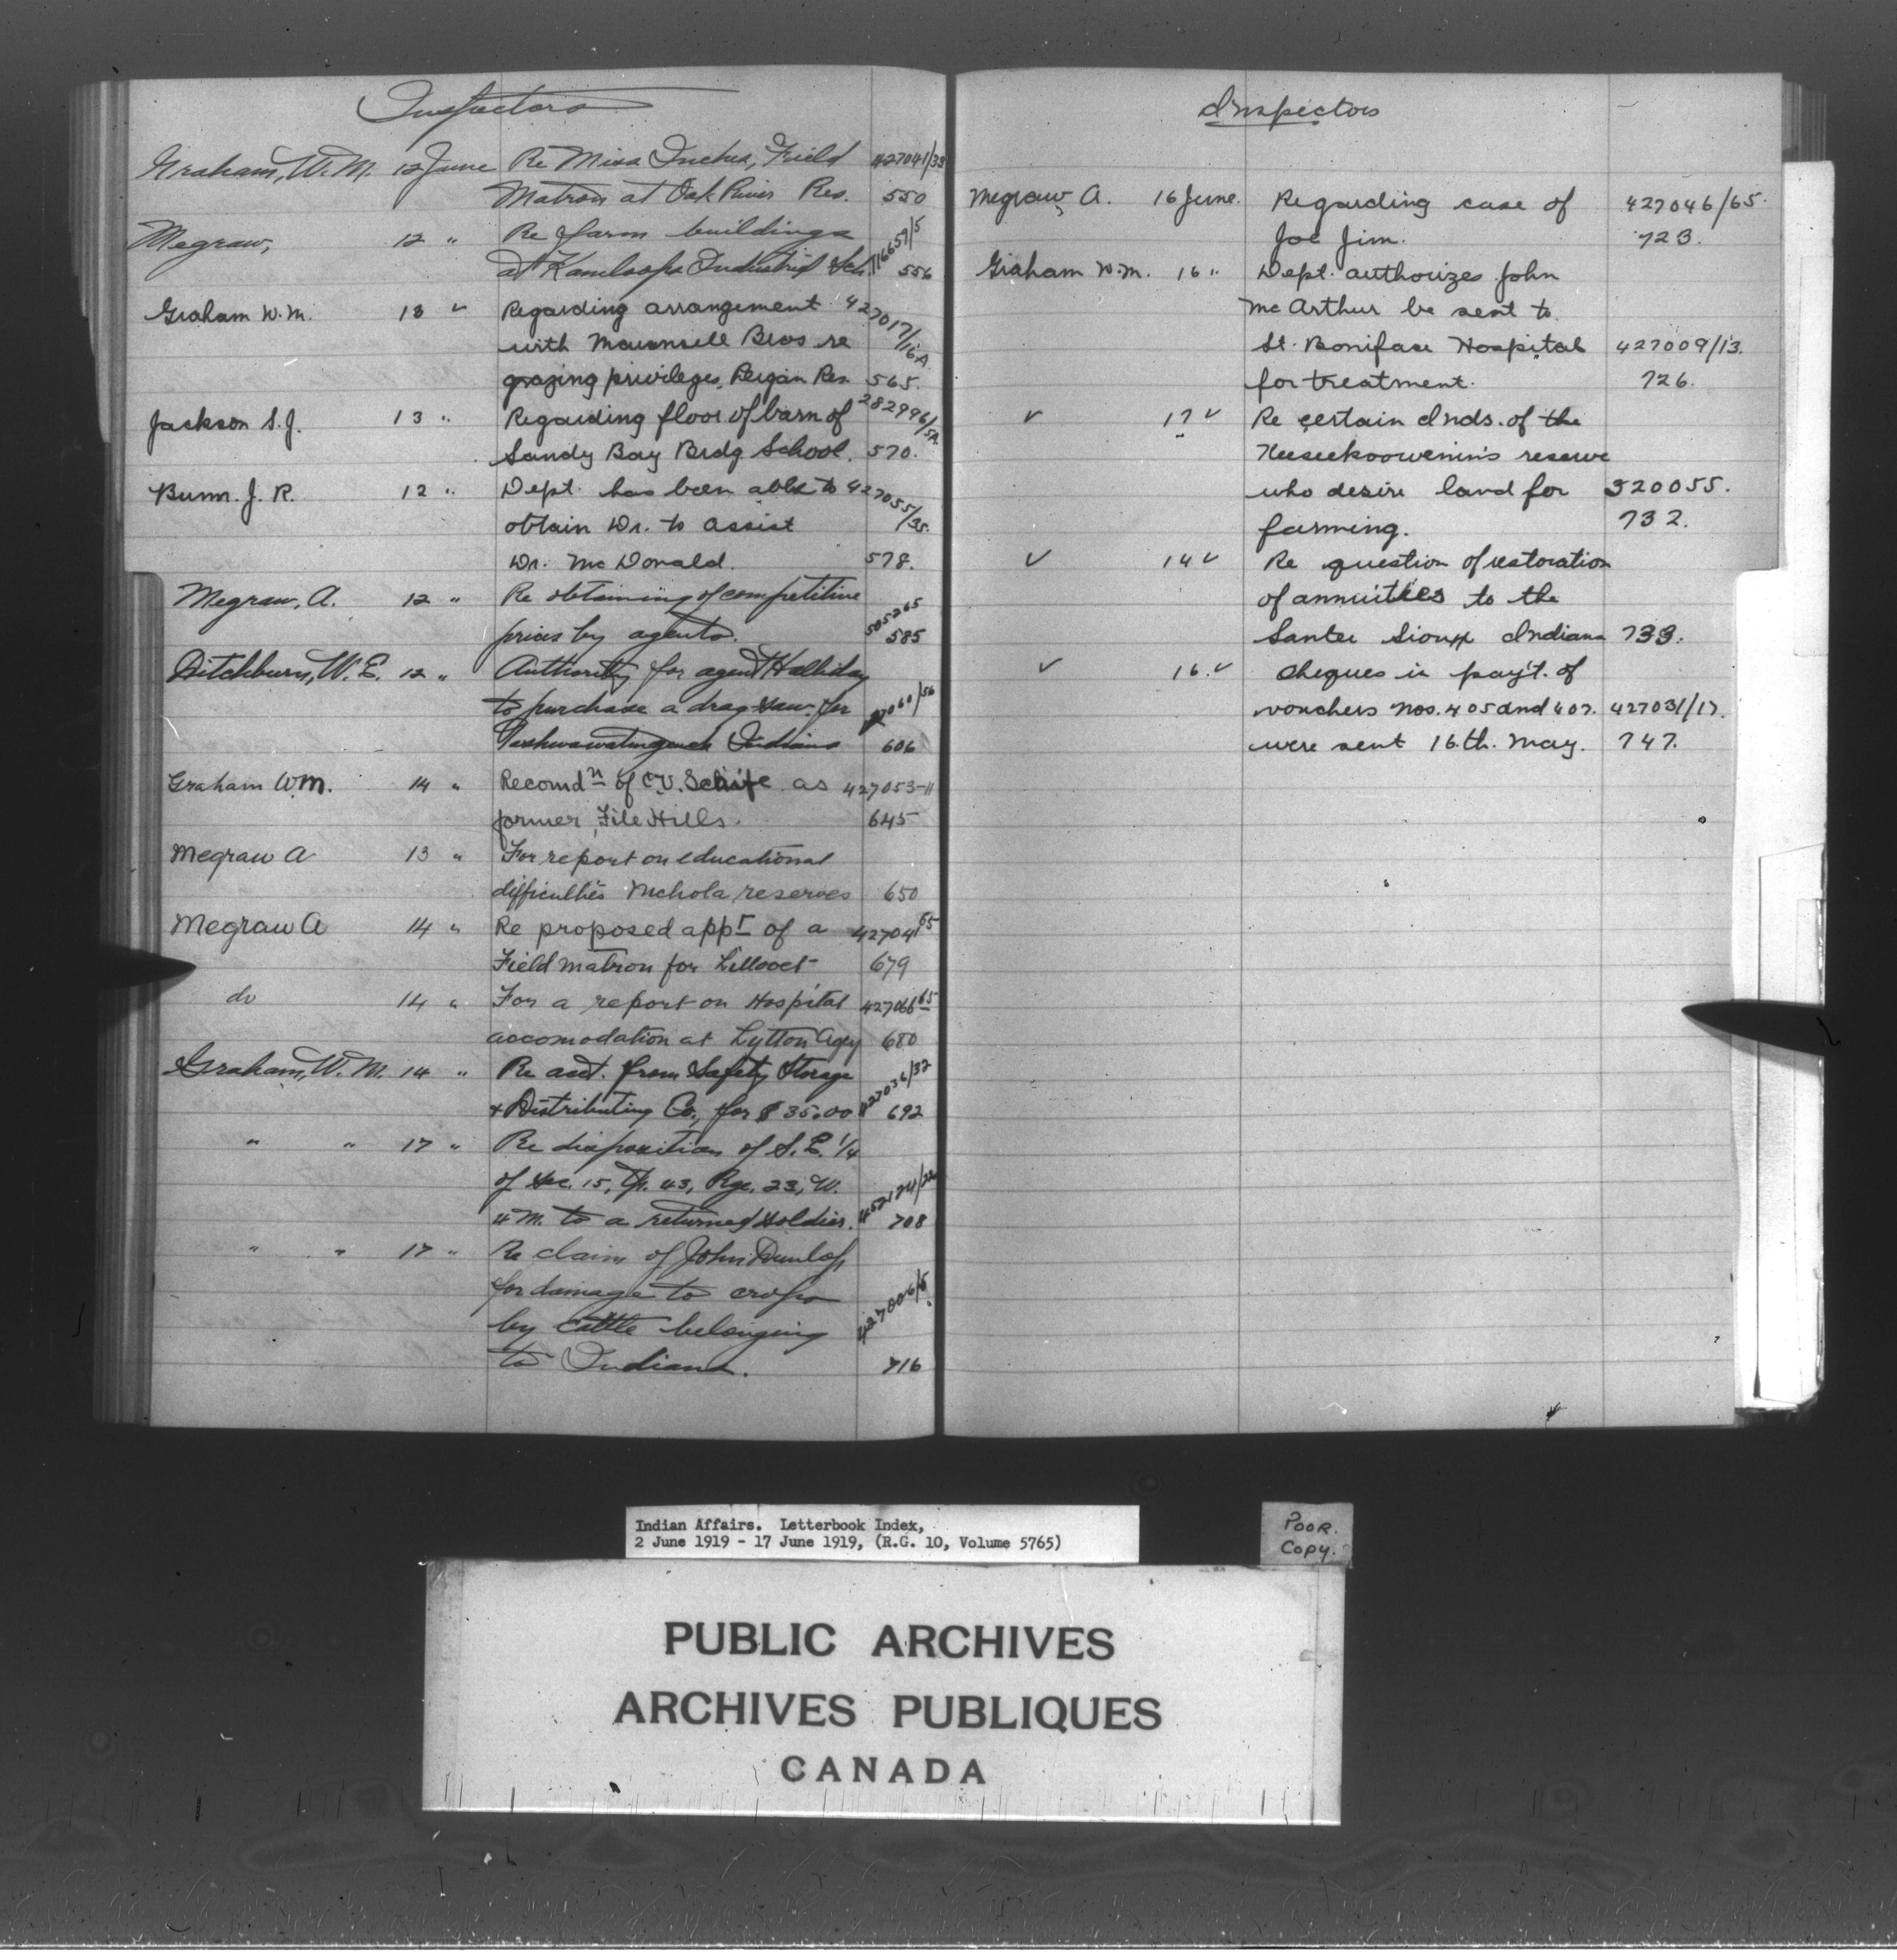 Inspectors
Graham, W. M. 12 June Re Miss Inches, Field 427041/33
Matron at Oak River Res. 550
Megraw, 12 " Re farm buildings 116659/5
at Kamloops Industrial Sch. 556
Graham W. M. 13 " Regarding arrangement 427017/16A
with Maunsell Bros re
grazing privileges, Peigan Res. 565.
Jackson S. J. 13 " Regarding floor of barn of 282996/5A
Sandy Bay Brdg. School. 570.
Bunn. J. R. 12 " Dept. has been able to 427055/35.
obtain Dr. to assist
Dr. Mc Donald. 578.
Megraw, A. 12 " Re obtaining of competitive
prices by agents. 505265 585
Ditchburn, W. E. 12 " Authority for agent Halliday
to purchase a drag saw for
Indians 606
Graham W.M. 14 " Recomdn of C.V. as 427053-11
farmer, File Hills. 645
Megraw A 13 " For report on educational
difficulties Nichola reserves 650
Megraw A 14 " Re proposed appt of a 427041 65
Field matron for Lillooet 679
do 14 " For a report on Hospital 427066 65
accomodation at Lytton Agcy 680
Graham, W. M. 14 " Re acct. from Safety Storage 427036/32
& Distributing Co., for $35.00 692
" " 17 " Re disposition of S. E. 1/4
of Sec. 15, Tp. 43, Rge. 23, W. 452124/22
4 M. to a returned soldier. 708
" " 17 " Re claim of John Dunlop
for damage to crops
by cattle belonging 427006/5
to Indians. 716
Inspectors
Megraw, A. 16 June. Regarding case of 427046/65.
Joe Jim. 723.
Graham W. M. 16 " Dept. authorizes John
Mc Arthur be sent to
St. Boniface Hospital 427009/13.
for treatment. 726.
" 17 " Re certain Inds. of the
Keeseekoowenin's reserve
who desire land for 320055.
farming. 732.
" 14 " Re question of restoration
of annuities to the
Santee Sioux Indians 733.
" 16. " Cheques in pay't. of
vouchers Nos. 405 and 407. 427031/17.
were sent 16.th. May. 747.
Indian Affairs. Letterbook Index,
2 June 1919 - 17 June 1919, (R.G. 10, Volume 5765)
POOR.
COPY.
PUBLIC ARCHIVES
ARCHIVES PUBLIQUES
CANADA